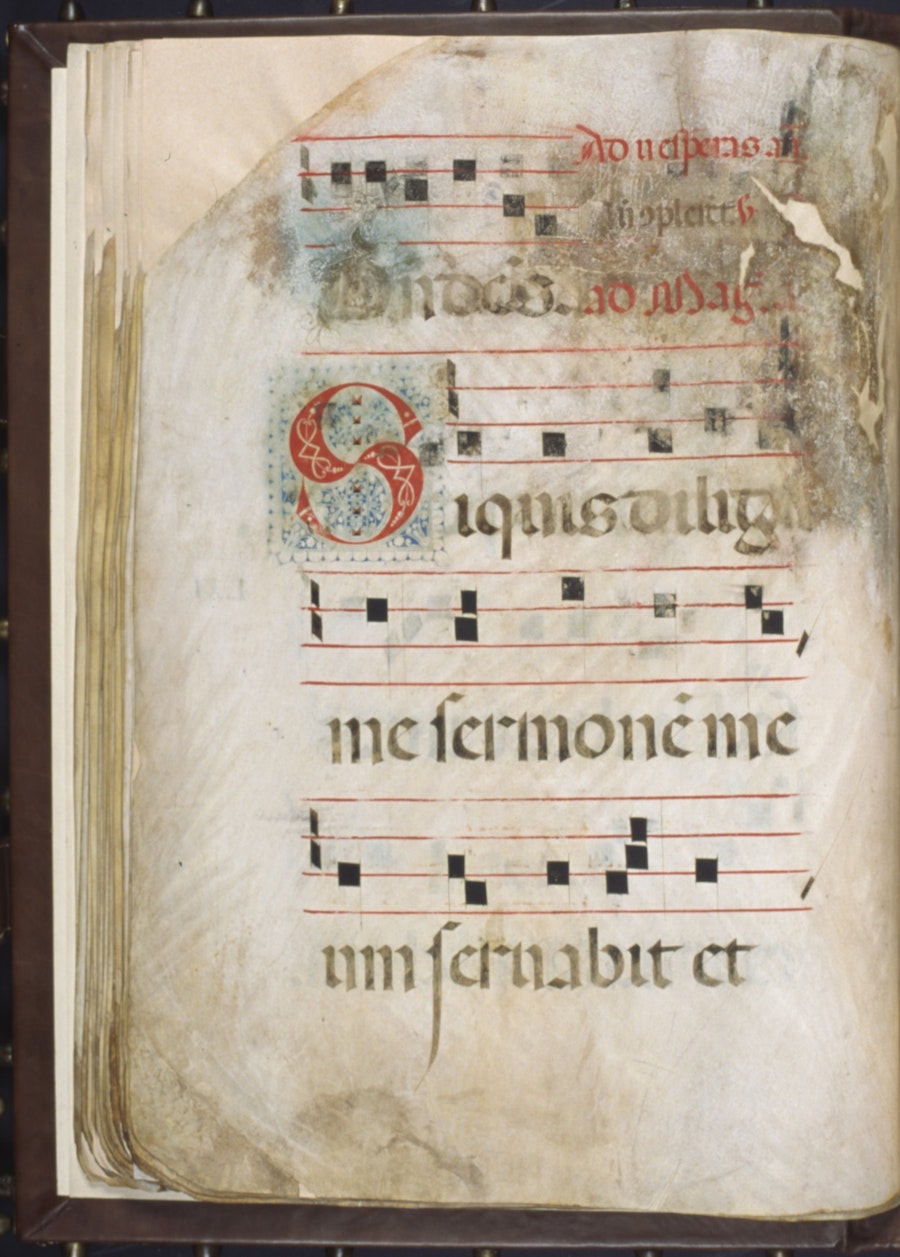 Ad uesperas añ
ad Mag̃
Siquis dilig
me sermonē me
um seruabit et